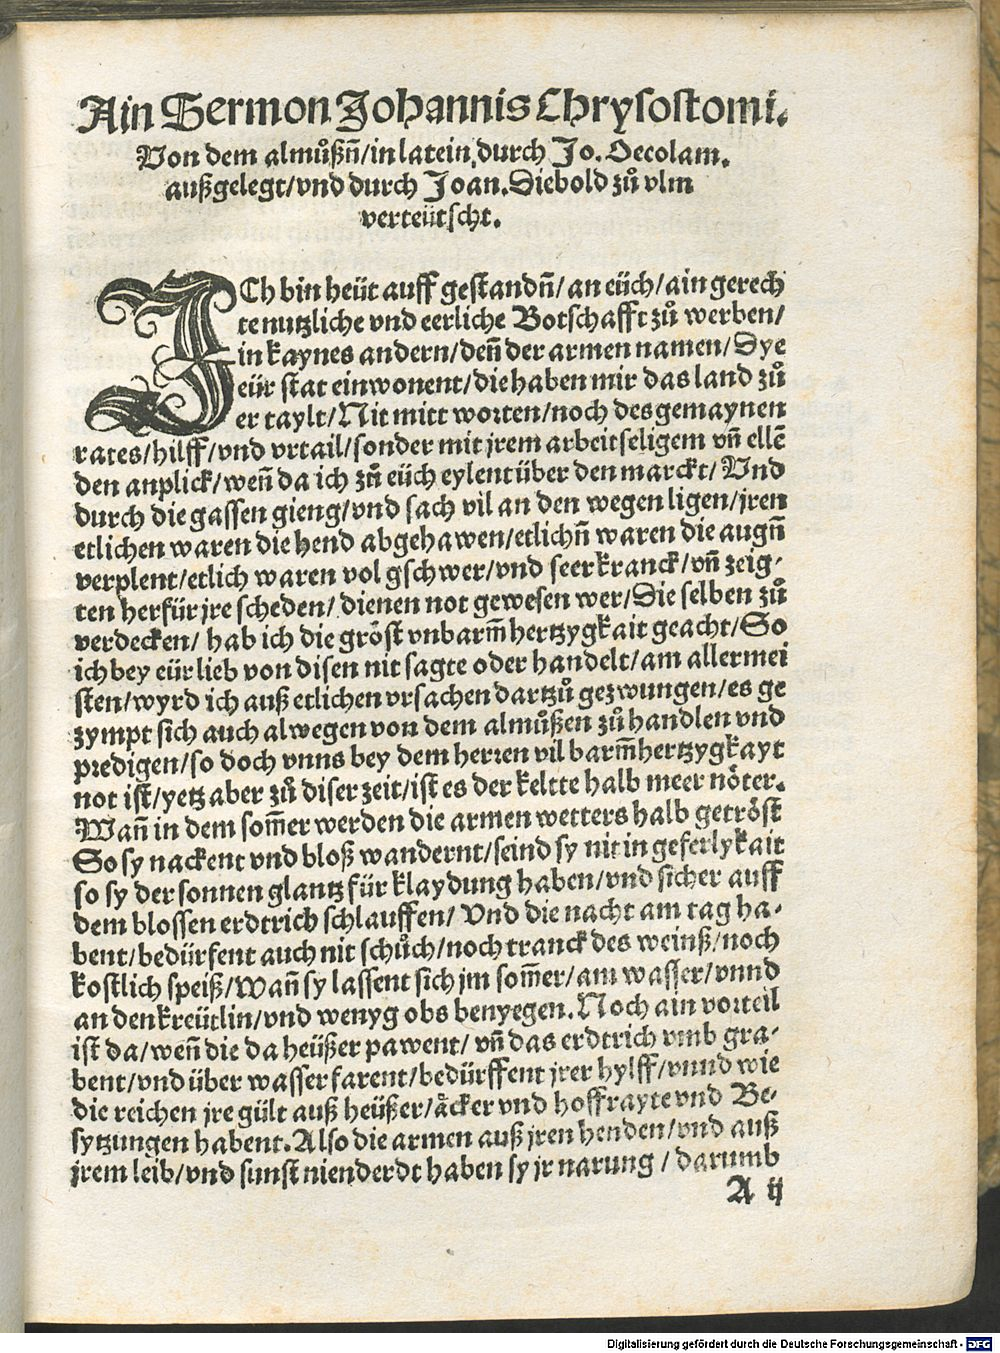 Ain Sermon Johannis Chrysostomi.
Von dem almůßñ/in latein durch Jo. Oecolam.
außgelegt/vnd durch Joan. Diebold zů vlm
verteütscht.
ICh bin heüt auff gestandñ/ an eüch/ ain gerech
te nutzliche vnd eerliche Botschafft zů werben/
in kaynes andern/ deñ der armen namen/ Dye
eür stat einwonent/ die haben mir das land zů
er taylt/ Nit mitt worten/ noch des gemaynen
rates/ hilff/ vnd vrtail/ sonder mit jrem arbeitseligem vñ ellē
den anplick/ weñ da ich zů eüch eylent über den marckt/ Vnd
durch die gassen gieng/ vnd sach vil an den wegen ligen/ jren
etlichen waren die hend abgehawen/ etlichñ waren die augñ
verplent/ etlich waren vol gschwer/ vnd seer kranck/ vñ zeig-
ten herfür jre scheden/ dienen not gewesen wer/ Die selben zů
verdecken/ hab ich die gröst vnbarm̃hertzygkait geacht/ So
ich bey eür lieb von disen nit sagte oder handelt/ am allermei
sten/ wyrd ich auß etlichen vrsachen dartzů gezwungen/ es ge
zympt sich auch alwegen von dem almůßen zů handlen vnd
predigen/ so doch vnns bey dem herren vil barm̃hertzygkayt
not ist/ yetz aber zů diser zeit/ ist es der keltte halb meer nöter.
Wañ in dem som̃er werden die armen wetters halb getröst
So sy nackent vnd bloß wandernt/ seind sy nit in geferlykait
so sy der sonnen glantz für klaydung haben/ vnd sicher auff
dem blossen erdtrich schlauffen/ Vnd die nacht am tag ha-
bent/ bedürfent auch nit schůch/ noch tranck des weinß/ noch
kostlich speiß/ Wañ sy lassent sich jm som̃er/ am wasser/ vnnd
an den kreütlin/ vnd wenyg obs benyegen. Noch ain vorteil
ist da/ weñ die da heüßer pawent/ vñ das erdtrich vmb gra-
bent/ vnd über wasser farent/ bedürffent jrer hylff/ vnnd wie
die reichen jre gült auß heüßer/ äcker vnd hoffrayte vnd Be-
sytzungen habent. Also die armen auß jren henden/ vnd auß
jrem leib/ vnd sunst nienderdt haben sy jr narung/ darumb
A ij
Digitalisierung gefördert durch die Deutsche Forschungsgemeinschaft - DFG